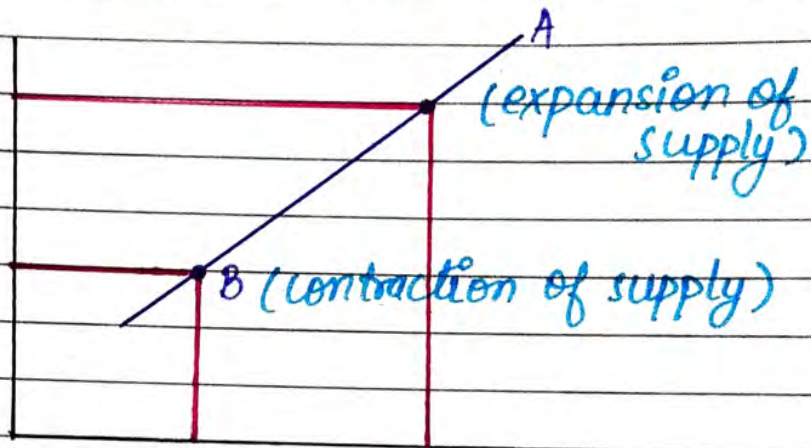 A
(expansion of
supply)
B (contraction of supply)